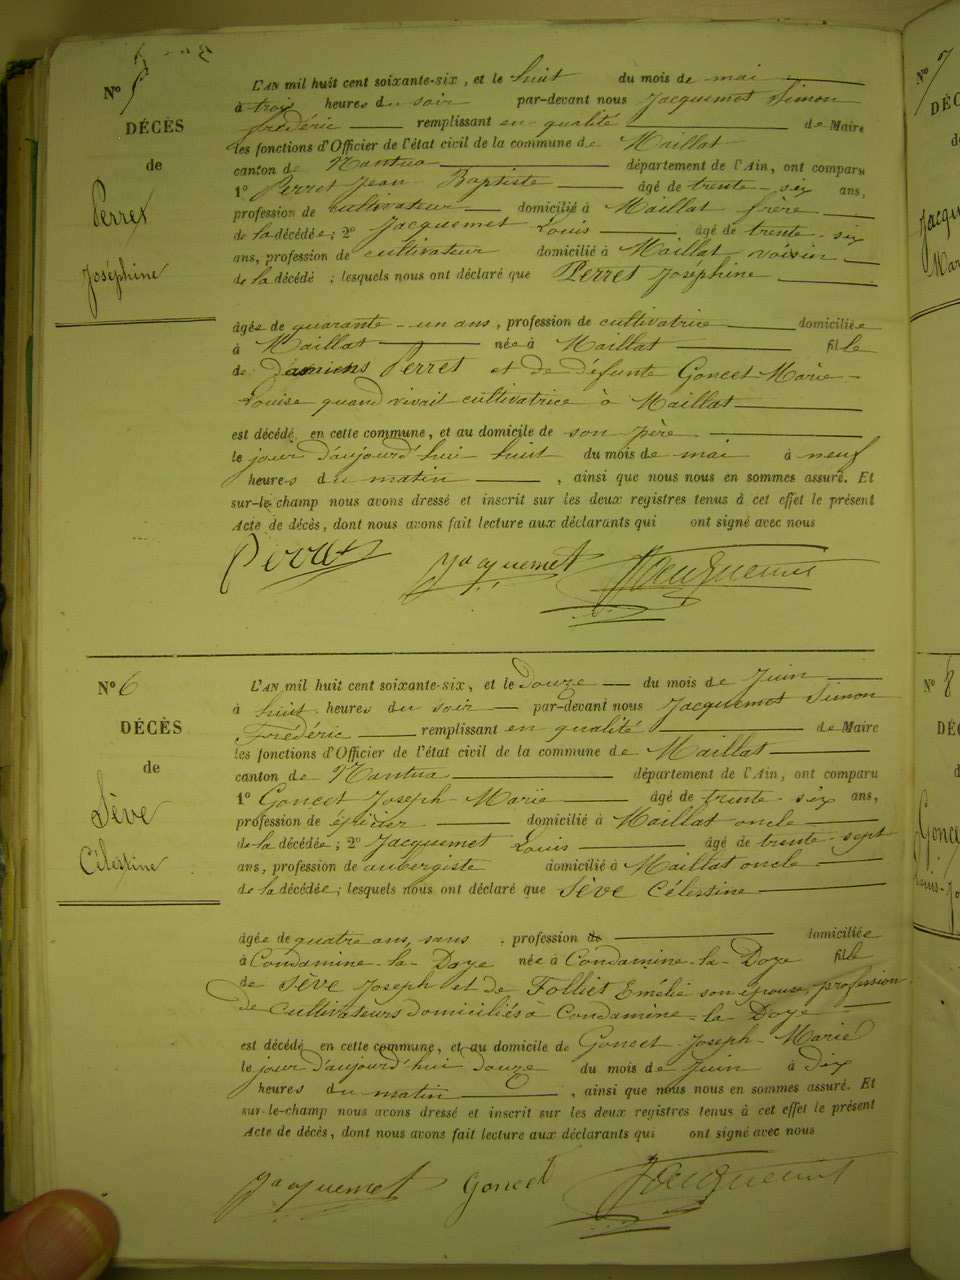 N° 5
DÉCÈS
de
Perret
Joséphine
L'AN mil huit cent soixante-six, et le huit du mois de mai
à trois heures du soir par-devant nous Jacquemet Simon
frédéric remplissant en qualité de Maire
les fonctions d'Officier de l'état civil de la commune de Maillat
canton de Nantua département de l'Ain, ont comparu
1° Perret Jean Baptiste âgé de trente-six ans,
profession de cultivateur domicilié à Maillat frère
de la décédée; 2° Jacquemet Louis âgé de trente-six
ans, profession de cultivateur domicilié à Maillat, voisin
de la décédé ; lesquels nous ont déclaré que Perret Joséphine
âgée de quarante-un ans, profession de cultivatrice domiciliée
à Maillat née à Maillat fille
de Damiens Perret et de défunte Goncet Marie-
Louise quand vivait cultivatrice à Maillat
est décédé, en cette commune, et au domicile de son père
le jour d'aujourd'hui huit du mois de mai à neuf
heures du matin , ainsi que nous nous en sommes assuré. Et
sur-le-champ nous avons dressé et inscrit sur les deux registres tenus à cet effet le présent
Acte de décès, dont nous avons fait lecture aux déclarants qui ont signé avec nous
Perret Jacquemet Jacquemet
N° 6
DÉCÈS
de
Sève
Célestine
L'AN mil huit cent soixante-six, et le douze du mois de Juin
à huit heures du soir par-devant nous Jacquemet Simon
Frédéric remplissant en qualité de Maire
les fonctions d'Officier de l'état civil de la commune de Maillat
canton de Nantua département de l'Ain, ont comparu
1° Goncet Joseph-Marie âgé de trente six ans,
profession de épicier domicilié à Maillat oncle
de la décédée; 2° Jacquemet Louis âgé de trente-sept
ans, profession de aubergiste domicilié à Maillat oncle
de la décédée; lesquels nous ont déclaré que Sève Célestine
âgée de quatre ans, sans , profession de domiciliée
à Condamine-la-Doye née à Condamine-la-Doye fille
de Sève Joseph et de Folliet Emélie son épouse, profession
de cultivateurs domiciliés à Condamine-la-Doye
est décédé, en cette commune, et au domicile de Goncet Joseph-Marie
le jour d'aujourd'hui douze du mois de Juin à dix
heures du matin , ainsi que nous nous en sommes assuré. Et
sur-le-champ nous avons dressé et inscrit sur les deux registres tenus à cet effet le présent
Acte de décès, dont nous avons fait lecture aux déclarants qui ont signé avec nous
Jacquemet Goncet Jacquemet
N° 7
DÉC
Jacqu
Mar
N° 8
DÉC
Gonce